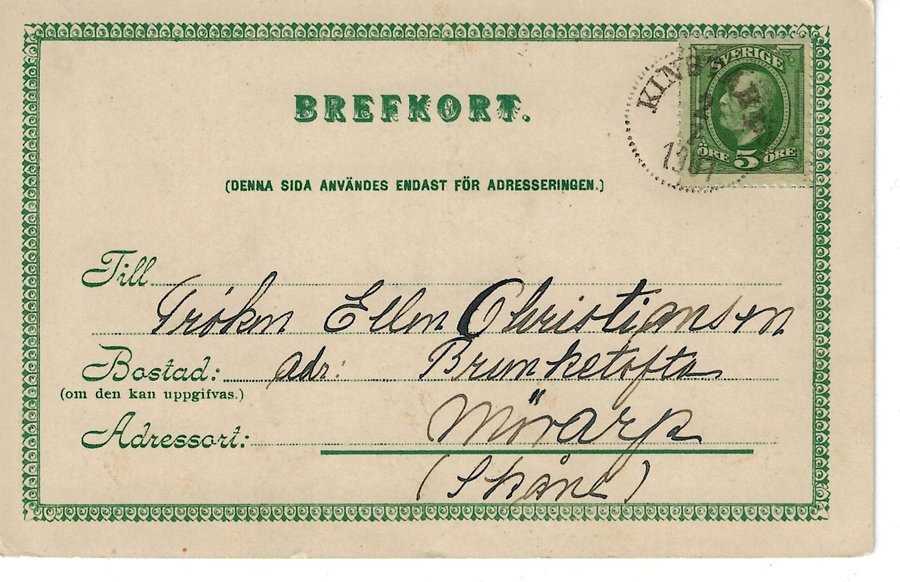 BREFKORT.
SVERIGE
ÖRE 5 ÖRE
(DENNA SIDA ANVÄNDES ENDAST FÖR ADRESSERINGEN.)
Till
Frøken Ellen Christiansen
Bostad: adr: Brunketofta
(om den kan uppgifvas.)
Adressort: Mörarp
(Skåne)